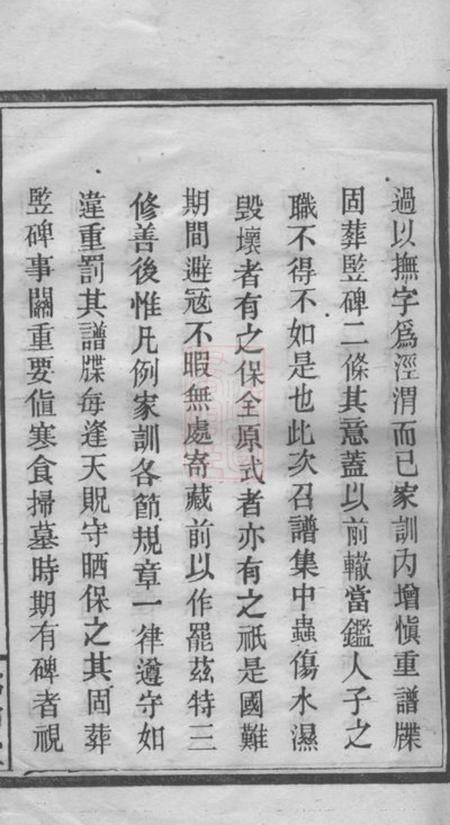 過以撫字爲涇渭而已家訓內增愼重譜牒
固葬竪碑二條其意葢以前轍當鑑人子之
職不得不如是也此次召譜集中蟲傷水濕
毀壞者有之保全原式者亦有之祇是國難
期間避寇不暇無處寄藏前以作罷茲特三
修善後惟凡例家訓各節規章一律遵守如
違重罰其譜牒每逢天貺守晒保之其固葬
竪碑事關重要值寒食掃墓時期有碑者視